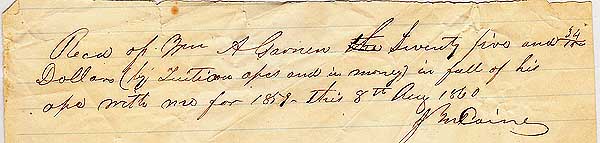 Recd of Wm A Garner the Twenty five and 34/100
Dollars (by Tuition apct and in money) in full of his
apc with me for 1859 - this 8th Aug 1860
J M Caine